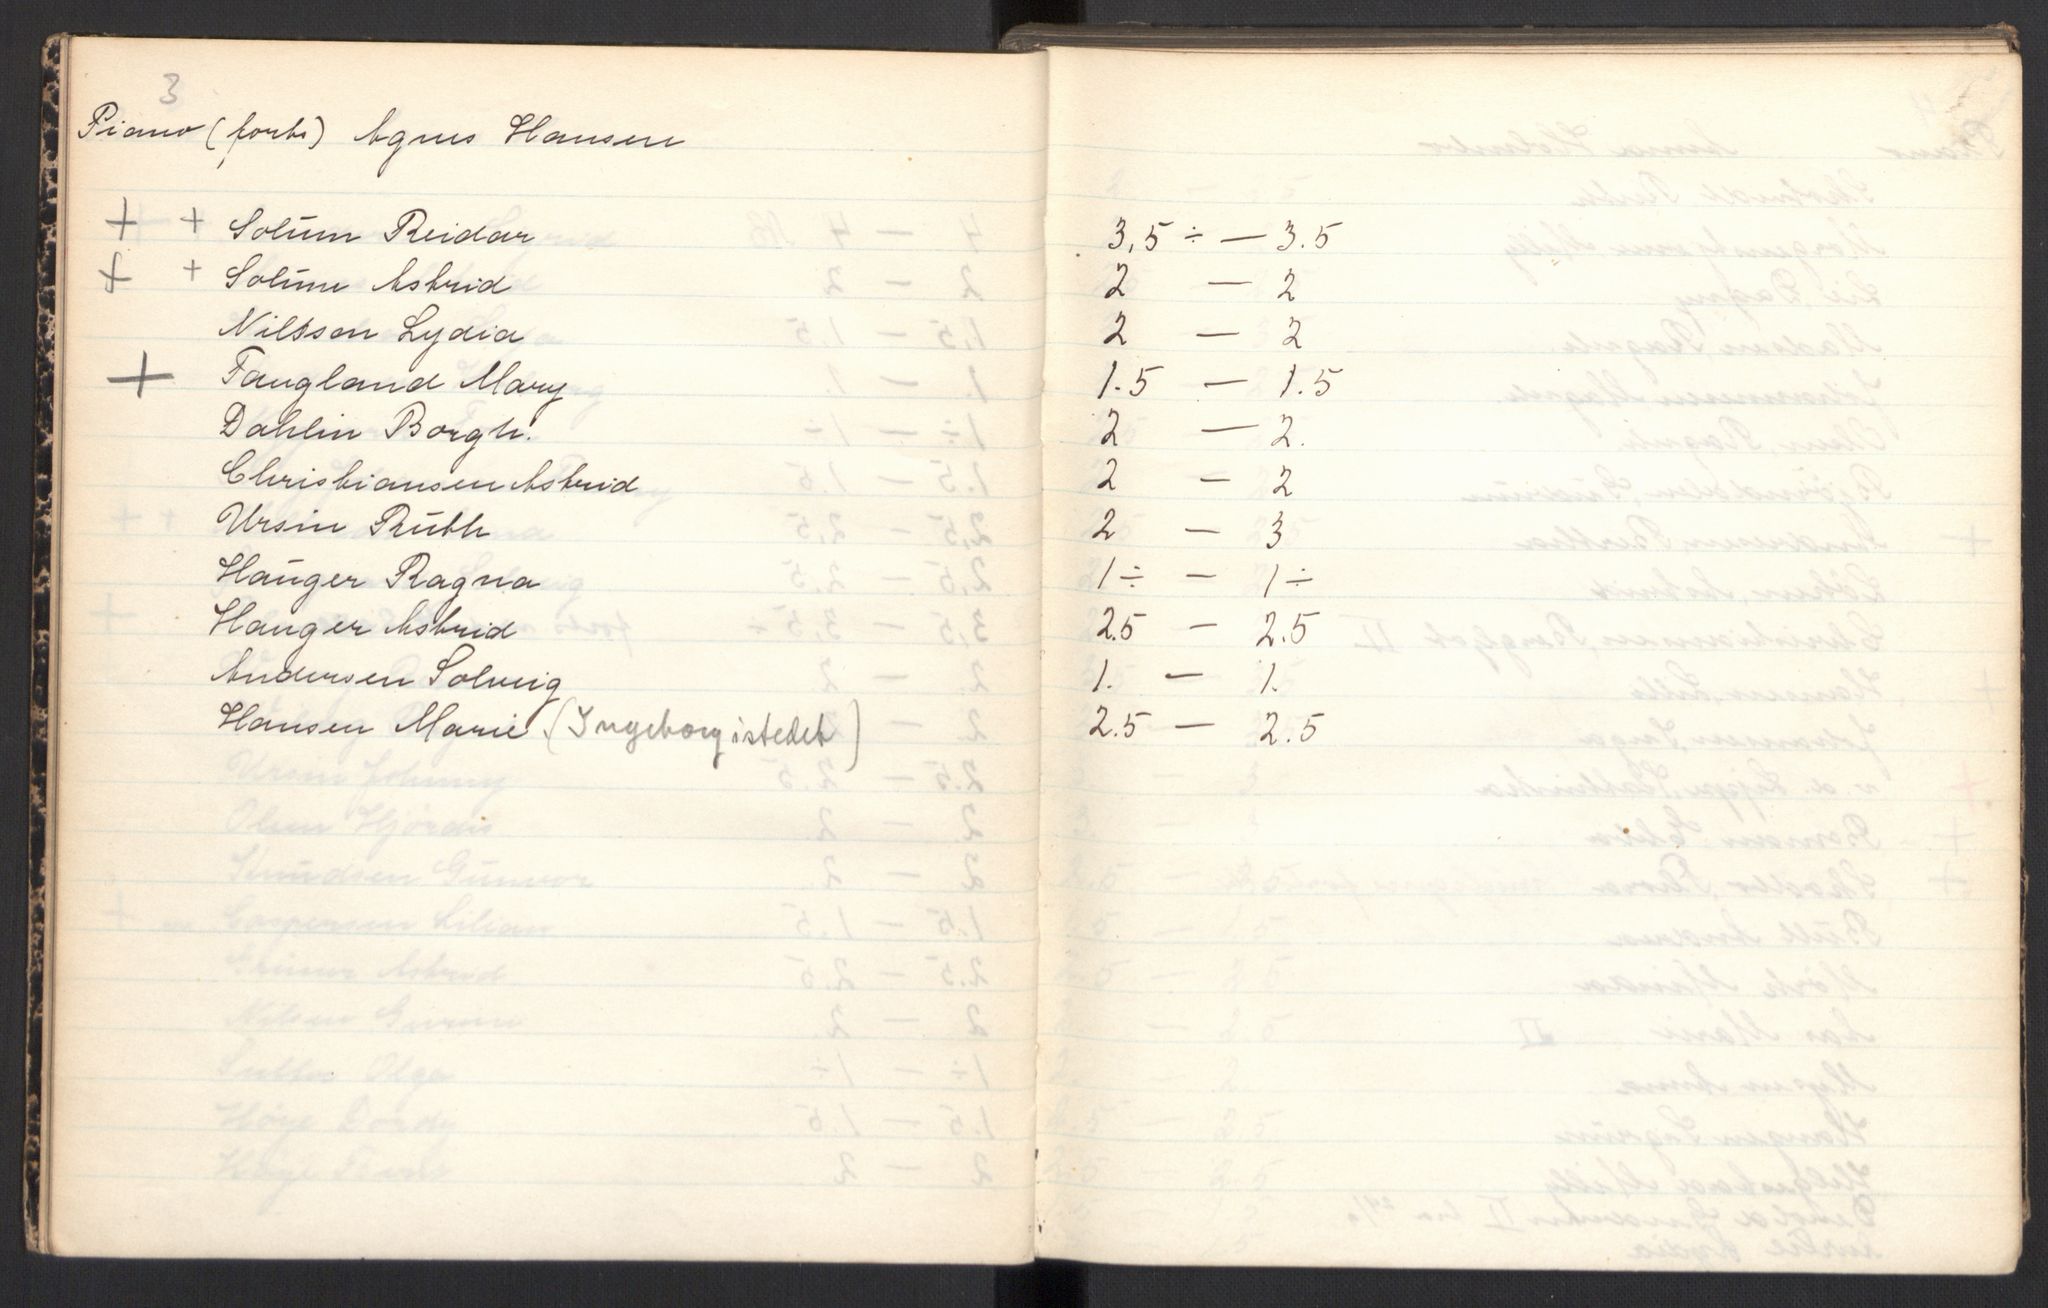 3
Piano (forts) Agnes Hansen
+ + Solum Reidar 3,5 ÷ — 3.5
+ + Solum Astrid 2 — 2
Nilsson Lydia 2 — 2
+ Faugland Mary 1.5 — 1.5
Dahlin Borgh. 2 — 2.
Christiansen Astrid 2 — 2
Ursin Ruth 2 — 3
Hauger Ragna 1 ÷ — 1 ÷
Hauger Astrid 2.5 — 2.5
Andersen Solveig 1. — 1.
Hansen Marie (Ingeborg istedet) 2.5 — 2.5